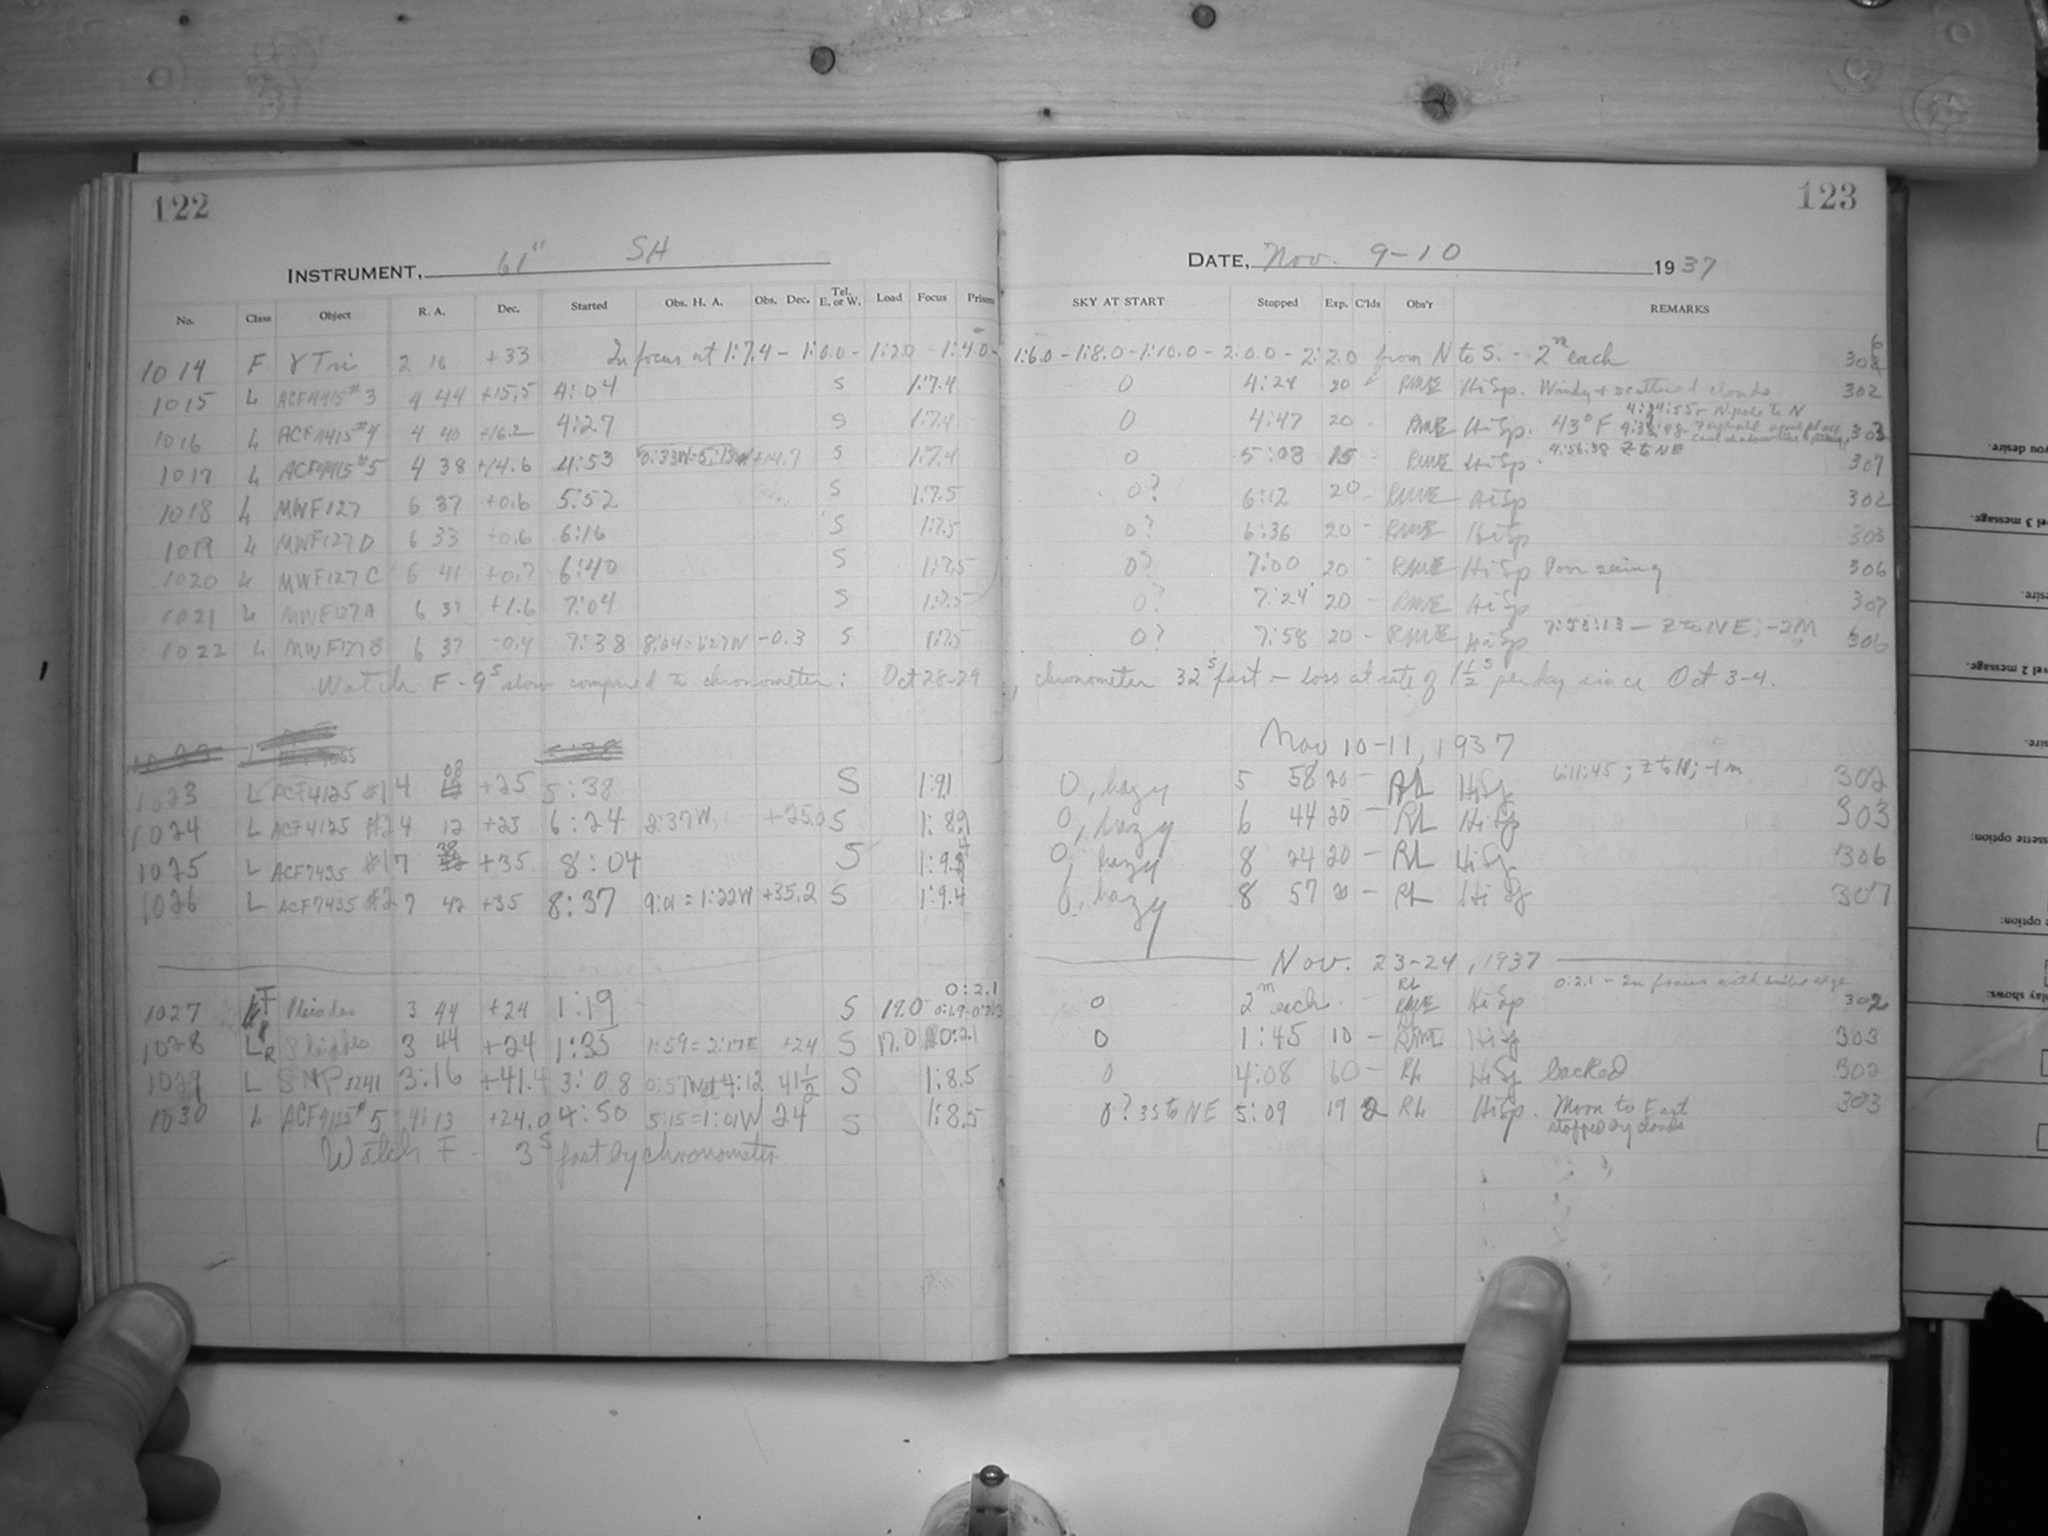 122
123
INSTRUMENT, 61" SH
DATE, Nov. 9-10 1937
No. Class Object R. A. Dec. Started Obs. H. A. Obs. Dec. Tel. E. or W. Load Focus Prisms SKY AT START Stopped Exp. C'lds Obs'r REMARKS
1014 F γ Tri 2 16 +33 In focus at 1:7.4 - 1:0.0 - 1:2.0 - 1:4.0 - 1:6.0 - 1:8.0 - 1:10.0 - 2:0.0 - 2:2.0 from N to S. - 2m each
1015 L ACF4415 #3 4 44 +15.5 4:04 S 1:7.4 0 4:24 20 - RME Hi Sp. Windy + scattered clouds 302
1016 L ACF4415 #4 4 40 +16.2 4:27 S 1:7.4 0 4:47 20 - RME Hi Sp. 43° F N. pole to N 303
1017 L ACF4415 #5 4 38 +14.6 4:53 +14.7 S 1:7.4 0 5:08 15 - RME Hi Sp. 4:56:38 Z to NE 307
1018 L MWF127 6 37 +0.6 5:52 S 1:7.5 0? 6:12 20 - RME Hi Sp 302
1019 L MWF127D 6 33 +0.6 6:16 S 1:7.5 0? 6:36 20 - RME Hi Sp 303
1020 L MWF127C 6 41 +0.7 6:40 S 1:7.5 0? 7:00 20 - RME Hi Sp Poor seeing 306
1021 L MWF127A 6 37 +1.6 7:04 S 1:7.5 0? 7:24 20 - RME Hi Sp 307
1022 L MWF127B 6 37 -0.4 7:38 8:04 = 1:27W -0.3 S 1:7.5 0? 7:58 20 - RME Hi Sp 7:53:13 - Z to NE; -2M 306
Watch F - 9s slow compared to chronometer: Oct 28-29, chronometer 32s fast - loss at rate of 1½s per day since Oct 3-4.
Nov 10-11, 1937
1023 L ACF4125 #1 4 08 +25 5:38 S 1:9.1 0, hazy 5 58 20 - RL Hi Sp 6:11:45; Z to N; -1m 302
1024 L ACF4125 #2 4 12 +25 6:24 2:37W +25.0 S 1:8.9 0, hazy 6 44 20 - RL Hi Sp 303
1025 L ACF7435 #1 7 38 +35 8:04 S 0, hazy 8 24 20 - RL Hi Sp 306
1026 L ACF7435 #2 7 42 +35 8:37 9:01 = 1:22W +35.2 S 1:9.4 0, hazy 8 57 20 - RL Hi Sp 307
Nov. 23-24, 1937
1027 F Pleiades 3 44 +24 1:19 S 17.0 0:2.1 0 2m each - RL RME Hi Sp 0:2.1 - In focus with edge 302
1028 LR Pleiades 3 44 +24 1:35 1:59 = 2:17E +24 S 17.0 0:2.1 0 1:45 10 - RME Hi Sp 303
1029 L SNP 3241 3:16 +41.4 3:08 0:57W at 4:12 41½ S 1:8.5 0 4:08 60 - RL Hi Sp backed 302
1030 L ACF4125 #5 4:13 +24.0 4:50 5:15 = 1:01W 24 S 1:8.5 0? 35 to NE 5:09 19 2 RL Hi Sp. Moon to East stopped by clouds 303
Watch F - 3s fast by chronometer